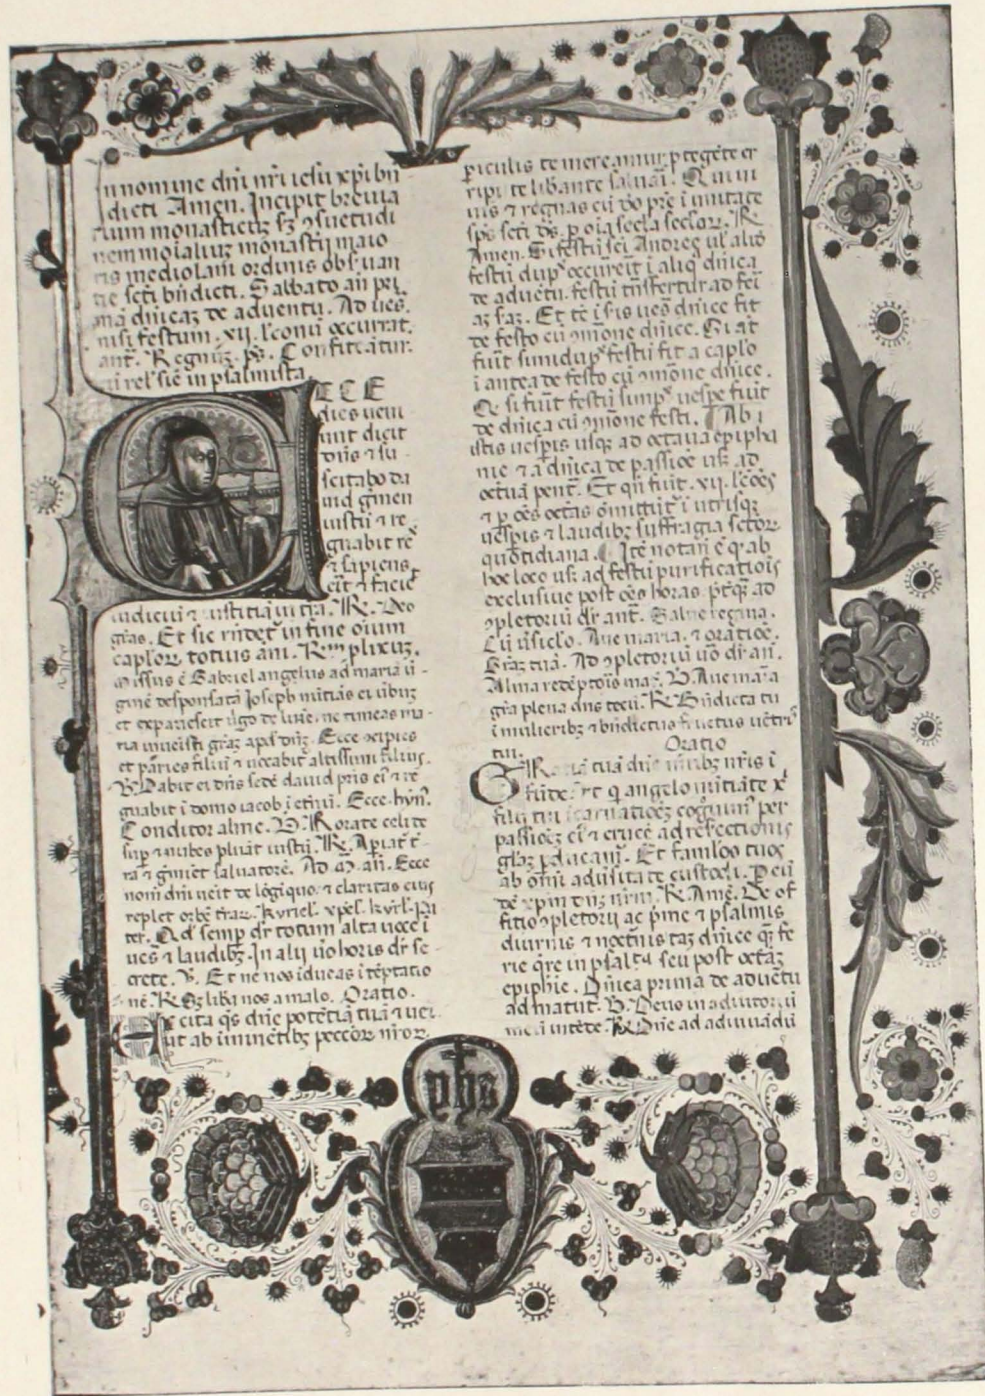 In nomine dni nri iesu xpi bn
dicti Amen. Incipit brevia
rium monasticum sz ɔsuetudi
nem moialium monasterii maio
ris mediolani ordinis obseruan
tie scti bndicti. Sabbato an pri
ma dnicaz de aduentu. Ad ues.
nisi festum .xii. lconu occurrat.
ant. Regnuz. ps. Confiteantur.
cu rel sic in psalmista.
ECCE
dies ueni
unt dicit
dns ⁊ su
scitabo da
uid gmen
iustu ⁊ re
gnabit re
⁊ sapiens
erit ⁊ faciet
iudiciu ⁊ iustitia in tra. R. Deo
gras. Et sic rndet in fine oium
caplor totius ani. R plixuz.
Missus e Gabriel angelus ad maria ui
gine desponsata Joseph nutias ei uerbuz
et expauescit ugo de lumie. ne timeas ma
ria inuenisti graz apd dnz. Ecce ɔcipies
et paries filiu ⁊ uocabit altissimi filius.
V. Dabit ei dns sede dauid pris ei ⁊ re
gnabit i domo iacob i etnu. Ecce. hyn.
Conditor alme. V. Rorate celi de
sup ⁊ nubes pluat iustu. R. Apiat t
ra ⁊ gmiet saluatore. Ad M. an. Ecce
nom dni ueit de loginquo. ⁊ claritas eius
replet orbe traz. Kyriel. xpel. kyrl. Pa
ter. Qd semp dr totum alta uoce i
ues ⁊ laudibz. In alij uo horis dr se
crete. V. Et ne nos iducas i teptatio
ne. R. Sz libera nos a malo. Oratio.
Excita qs dne potetia tua ⁊ ueni
ut ab iminetibz peccor nror
piculis te mereamur ptegete er
ripi. te libante saluari. Qui ui
uis ⁊ regnas cu do pre i unitate
sps scti ds. p oia secla seclor. R.
Amen. Si festu sci Andree ul aliud
festu dup occurerit i aliq dnica
de aduetu. festu transfertur ad feri
az saz. Et te i pris ues dnice fit
de festo cu ɔmone dnice. Si at
fuit simidup festu fit a caplo
i antea de festo cu ɔmone dnice.
Qe si fuit festu simp. uespe fiut
de dnica cu ɔmone festi. Ab i
istis uespis usqz ad octaua epipha
nie ⁊ a dnica de passioe usz ad
octaua pent. Et qn fiut .xii. lcoes
⁊ p oes octas omittut i utrisqz
uespis ⁊ laudibz suffragia sctor
quotidiana. Ite notan e q ab
hoc loco usz ad festu purificatiois
exclusiue post oes horas. ptqz ad
ɔpletoriu dr ant. Salue regina.
Cu usiclo. Aue maria. ⁊ oratioe.
Graz tua. Ad ɔpletoriu uo dr an.
Alma redeptois mar. V. Aue maria
gra plena dns tecu. R. Bndicta tu
i mulieribz ⁊ bndictus fructus uetris
tui. Oratio
GRatia tua dne metibz nris i
funde. ut q angelo nutiate x
filij tui icarnatioez cognuim per
passioez ei ⁊ cruce ad resurectionis
glaz pducam. Et famlos tuos
ab omi aduersitate custodi. P eu
de xpm dnz nrm. R. Ame. De of
fitio ɔpletorij ac pme ⁊ psalmis
diurnis ⁊ nocturnis taz dnice q fe
rie qre in psalta seu post octaz
epiphie. Dnica prima de aduentu
ad matut. V. Deus in adiutoriu
meu intede. R. Dne ad adiuuandu
yhs